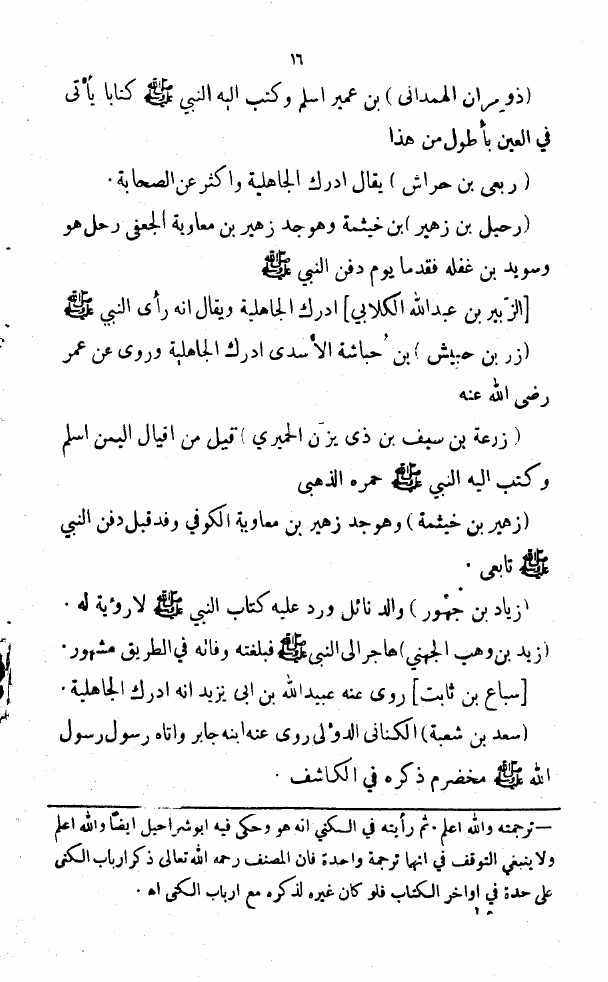 ١٦
(ذو مران الهمدانى) بن عمير اسلم وكتب اليه النبي ﷺ كتابا يأتى
في العين بأطول من هذا
(ربعى بن حراش) يقال ادرك الجاهلية واكثر عن الصحابة.
(رحيل بن زهير) ابن خيثمة وهو جد زهير بن معاوية الجعفي رحل هو
وسويد بن غفله فقدما يوم دفن النبي ﷺ
[الزبير بن عبدالله الكلابي] ادرك الجاهلية ويقال انه رأى النبي ﷺ
(زر بن حبيش) بن حباشة الأسدى ادرك الجاهلية وروى عن عمر
رضى الله عنه
(زرعة بن سيف بن ذى يزن الحميري) قيل من اقيال اليمن اسلم
وكتب اليه النبي ﷺ حمره الذهبى
(زهير بن خيثمة) وهو جد زهير بن معاوية الكوفي وفد قبل دفن النبي
ﷺ تابعى.
(زياد بن جهور) والد نائل ورد عليه كتاب النبي ﷺ لا رؤية له.
(زيد بن وهب الجهني) هاجر الى النبي ﷺ فبلغته وفاته في الطريق مشهور.
[سباع بن ثابت] روى عنه عبيدالله بن ابى يزيد انه ادرك الجاهلية.
(سعد بن شعبة) الكنانى الدؤلى روى عنه ابنه جابر واتاه رسول رسول
الله ﷺ مخضرم ذكره في الكاشف.
— ترجمته والله اعلم. ثم رأيته في الكني انه هو وحكى فيه ابو شراحيل ايضا والله اعلم
ولا ينبغي التوقف في انها ترجمة واحدة فان المصنف رحمه الله تعالى ذكر ارباب الكنى
على حدة في اواخر الكتاب فلو كان غيره لذكره مع ارباب الكنى اه.